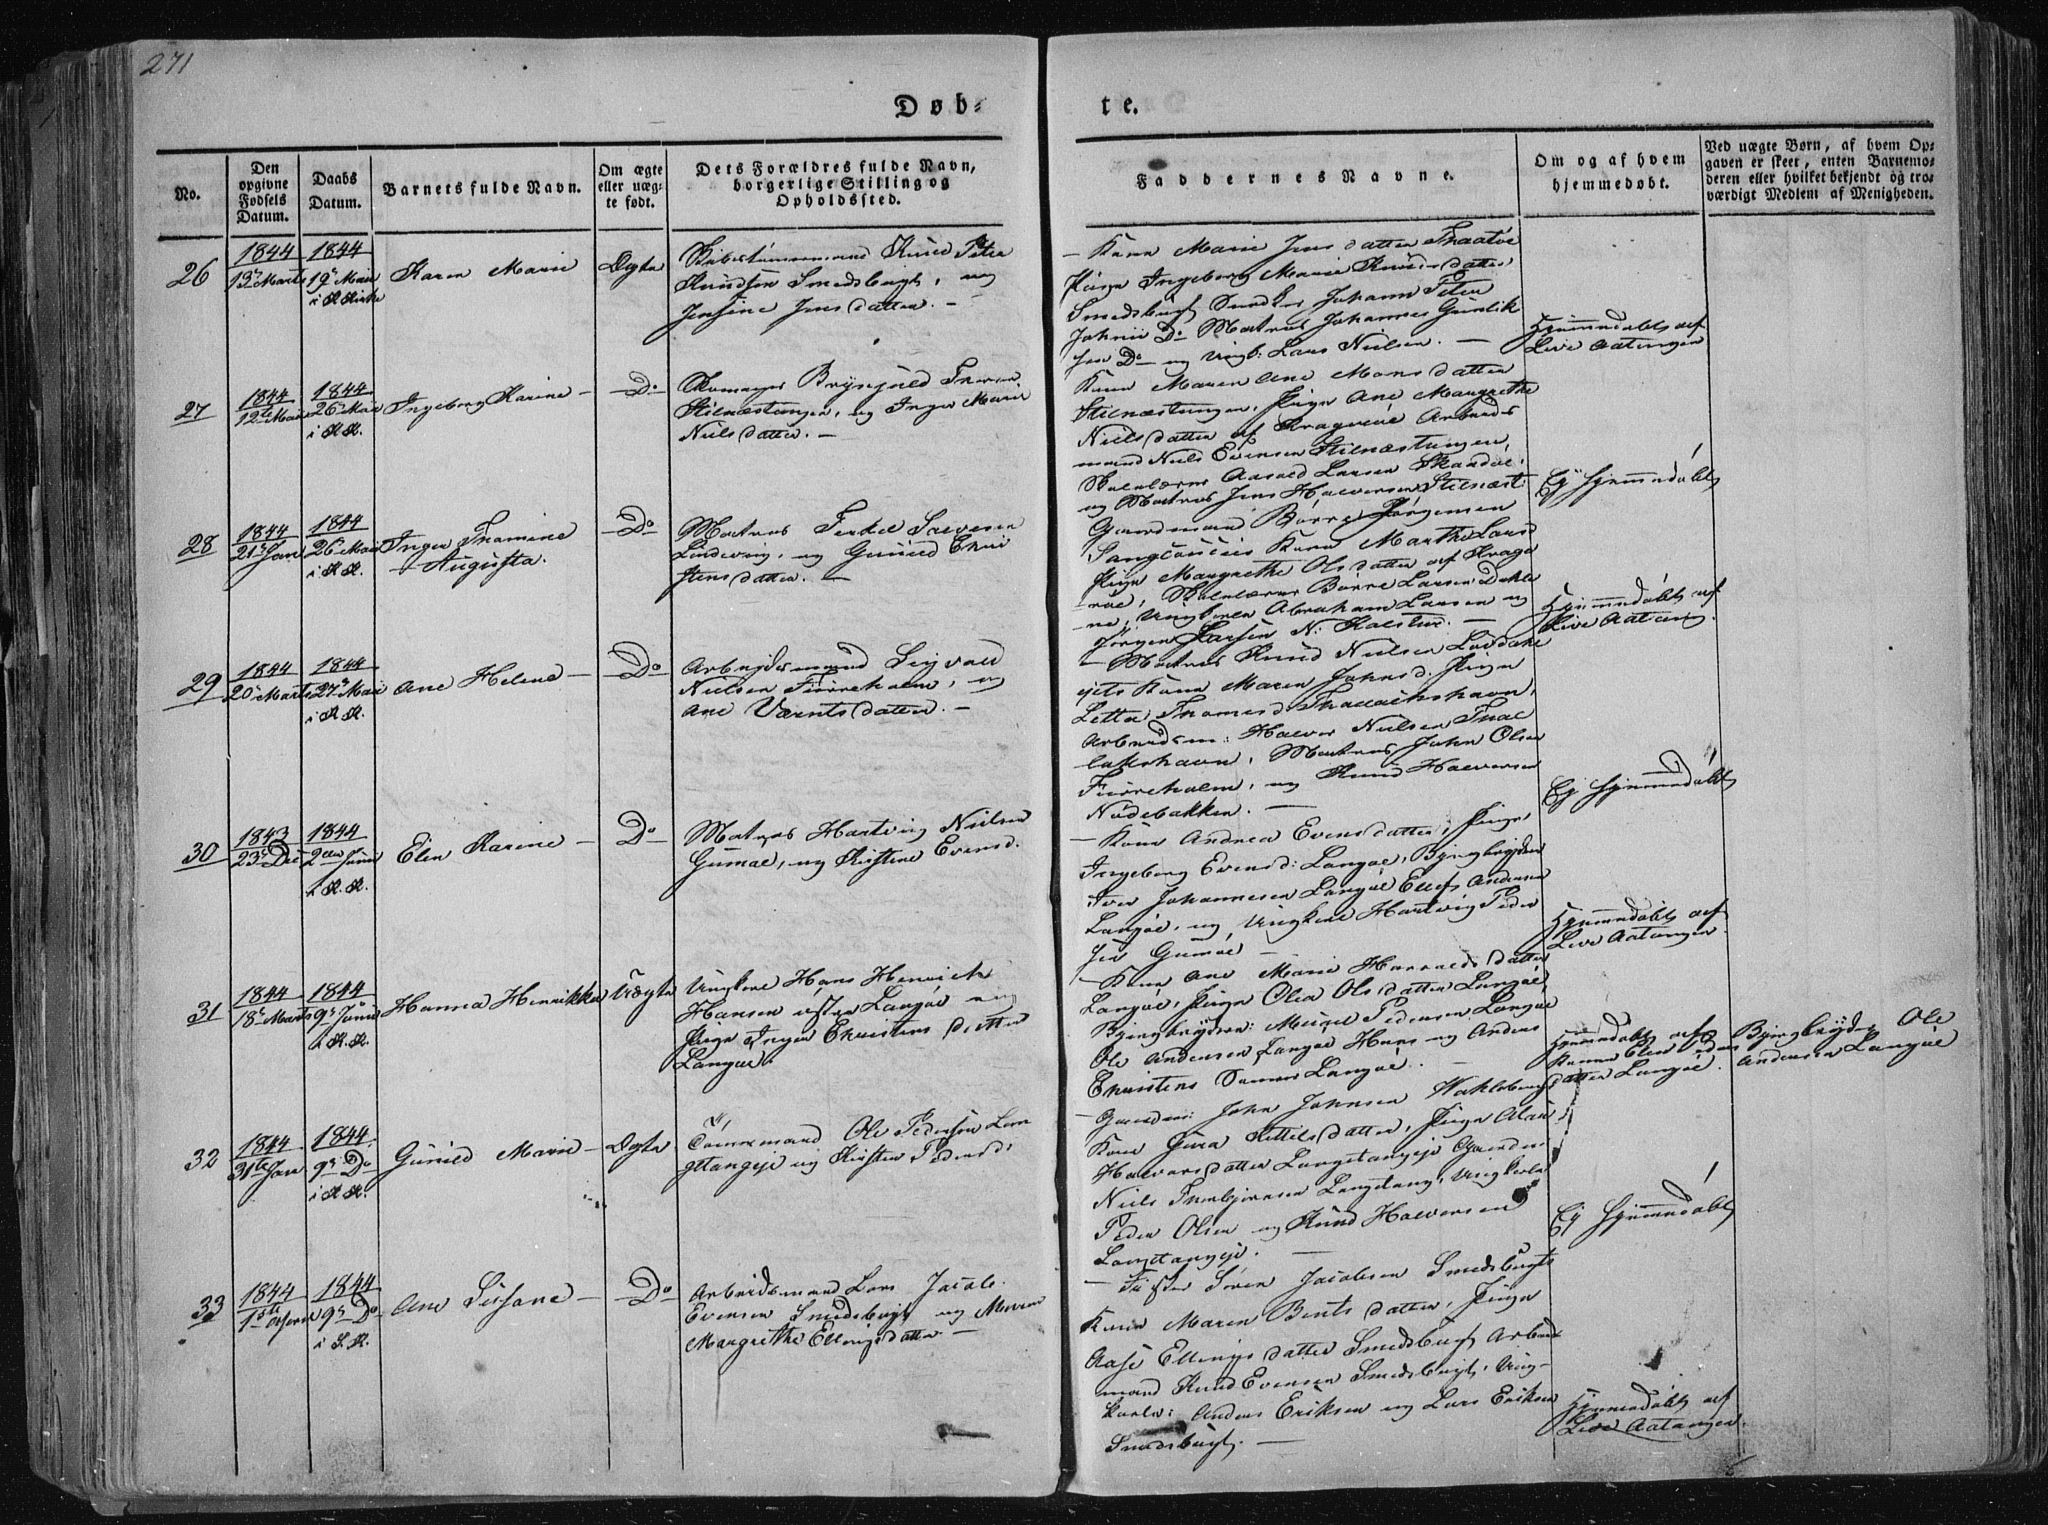 271
Døb-
te.
No.
Den opgivne Fødsels Datum.
Daabs Datum.
Barnets fulde Navn.
Om ægte eller uægte født.
Dets Forældres fulde Navn, borgerlige Stilling og Opholdssted.
Faddernes Navne.
Om og af hvem hjemmedøbt.
Ved uægte Børn, af hvem Opgaven er skeet, enten Barnemoderen eller hvilket bekjendt og troværdigt Medlem af Menigheden.
26
1844
13de Marts
1844
19de Mai
Karen Marie
Ægte
Knud Peter
Knudsen Smedsbugt, og
Jensine Jensdatter. —
— Kone Marie Jensdatter Skaatøe
Pige Ingeborg Marie Knudsdatter
Smedsbugt Johann Peter
Do Matros Johannes Gunlik
sen Do og Ungk: Lars Nielsen. —
Hjemmedøbt af
Live Aatangen
27
1844
12te Mai
1844
26 Mai
i K.K.
Ingeborg Karine —
Do
Brynjuld
Stilnæstangen, og Inger Marie
Nielsdatter. —
Kone Maren Ane Monsdatter
Stilnæstangen, Pige Ane Margrethe
Nielsdatter af Kragerøe Arbeids
mand Niels Evensen Stilnæstangen,
Skolelærer Larsen Skaadøe,
og Matros Jens Halvorsen Stilnæst:
Ej Hjemmedøbt
28
1844
21 Jan
1844
26 Mai
i K.K.
Inger Tramine
Augusta.
Do
Matros Terkel
og Gunild Chri
stensdatter. —
Gaardmand Børre Jørgensen
Kone Marthe Lars
Pige Margrethe Olsdatter af Krage
røe, Skolelærer Børre Larsen
Ungkarle Abraham Larsen og
Jørgen Larsen N: Kalstad. —
Hjemmedøbt af
Live Aatang.
29
1844
20 Marts
1844
27 Mai
i K.K.
Ane Helene —
Do
Arbeidsmand
Nielsen Furreholm, og
Ane Værntsdatter. —
— Matros Knud Nielsen
Kone Maren Johnsd: Pige
Arbeidsm: Halvor Nielsen
Matros John Olsen
Furreholm, og Knud Halvorsen
Nødebakken. —
Ej Hjemmedøbt
30
1843
23 Dec
1844
2den Juni
i K.K.
Elen Karine —
Do
Matros Hartvig Nielsen
Gumøe, og Kirstine Evensd.
— Kone Andrea Evensdatter, Pige
Ingeborg Evensd: Langøe, Bjergbryder
Iver Johannesen Langøe Ellef Andersen
Langøe, og Ungkarl Hartvig Peder
sen Gumøe —
Hjemmedøbt af
Live Aatangen
31
1844
18 Marts
1844
9de Juni
i K.K.
Hanna Henrikka
Uægte
Ungkarl Hans Henrick
Hansen Langøe og
Pige Inger Christensdatter
Langøe.
— Kone Ane Marie Harraldsdatter
Langøe, Pige Olea Olsdatter Langøe,
Bjergbryder: Pedersen Langøe
Ole Andersen Langøe Hans og Anders
Christens Sønner Langøe. —
Hjemmedøbt af
Kone Elen
datter Langøe.
Bjergbryder Ole
Andersen Langøe
32
1844
31te Jan
1844
9de Do
i K.K.
Gunild Marie —
Ægte
Tømmermand Ole Pedersen Lan
getangen og Kirsten Pedersd:
— Gaardm: John Johnsen
Kone Kittelsdatter, Pige
Halvorsdatter Langetangen
Niels Torbjørnsen Langetang, Ungkarle
Peder Olsen og Knud Halvorsen
Langetangen. —
Ej Hjemmedøbt
33
1844
1844
9de Do
Ane Susane —
Do
Arbeidsmand Lars Jacob
Evensen Smedsbugt og Maren
Margrethe Ellingsdatter —
— Fisker Søren Jacobsen Smedsbugt
Kone Maren Bentsdatter, Pige
Aase Ellingsdatter Smedsbugt Arbeids
mand Knud Evensen Smedsbugt, Ung-
karle: Anders Eriksen og Lars Eriksen
Smedsbugt. —
Hjemmedøbt af
Live Aatangen.